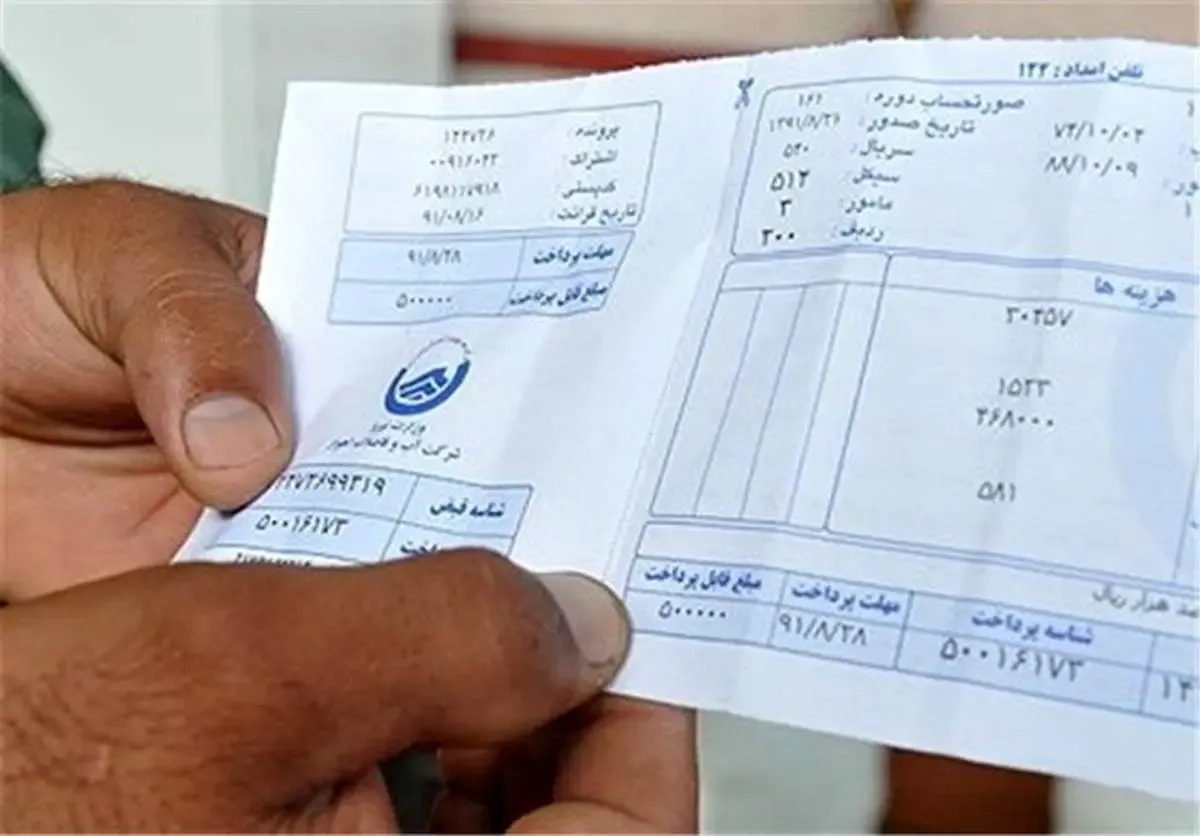 تلفن امداد : ۱۲۲
صورتحساب دوره : ۱۶۱
تاریخ صدور : ۱۳۹۱/۸/۲۱
سریال : ۵۴۰
سیکل : ۵۱۲
مامور : ۳
ردیف : ۳۰۰
۷۴/۱۰/۰۴
۸۸/۱۰/۰۹
هزینه ها
۳۰۴۵۷
۱۵۲۳
۴۶۸۰۰۰
۵۸۱
هزار ریال
شناسه پرداخت
مهلت پرداخت
مبلغ قابل پرداخت
۵۰۰۱۶۱۷۳
۹۱/۸/۲۸
۵۰۰۰۰۰
پرونده : ۱۲۳۷۲۶
اشتراک : ۰۰۹۱۶۰۴۲
کدپستی : ۶۱۹۸۱۱۷۹۱۸
تاریخ قرائت : ۹۱/۰۸/۱۶
مهلت پرداخت ۹۱/۸/۲۸
مبلغ قابل پرداخت ۵۰۰۰۰۰
وزارت نیرو
شرکت آب و فاضلاب اهواز
شناسه قبض
۵۰۰۱۶۱۷۳